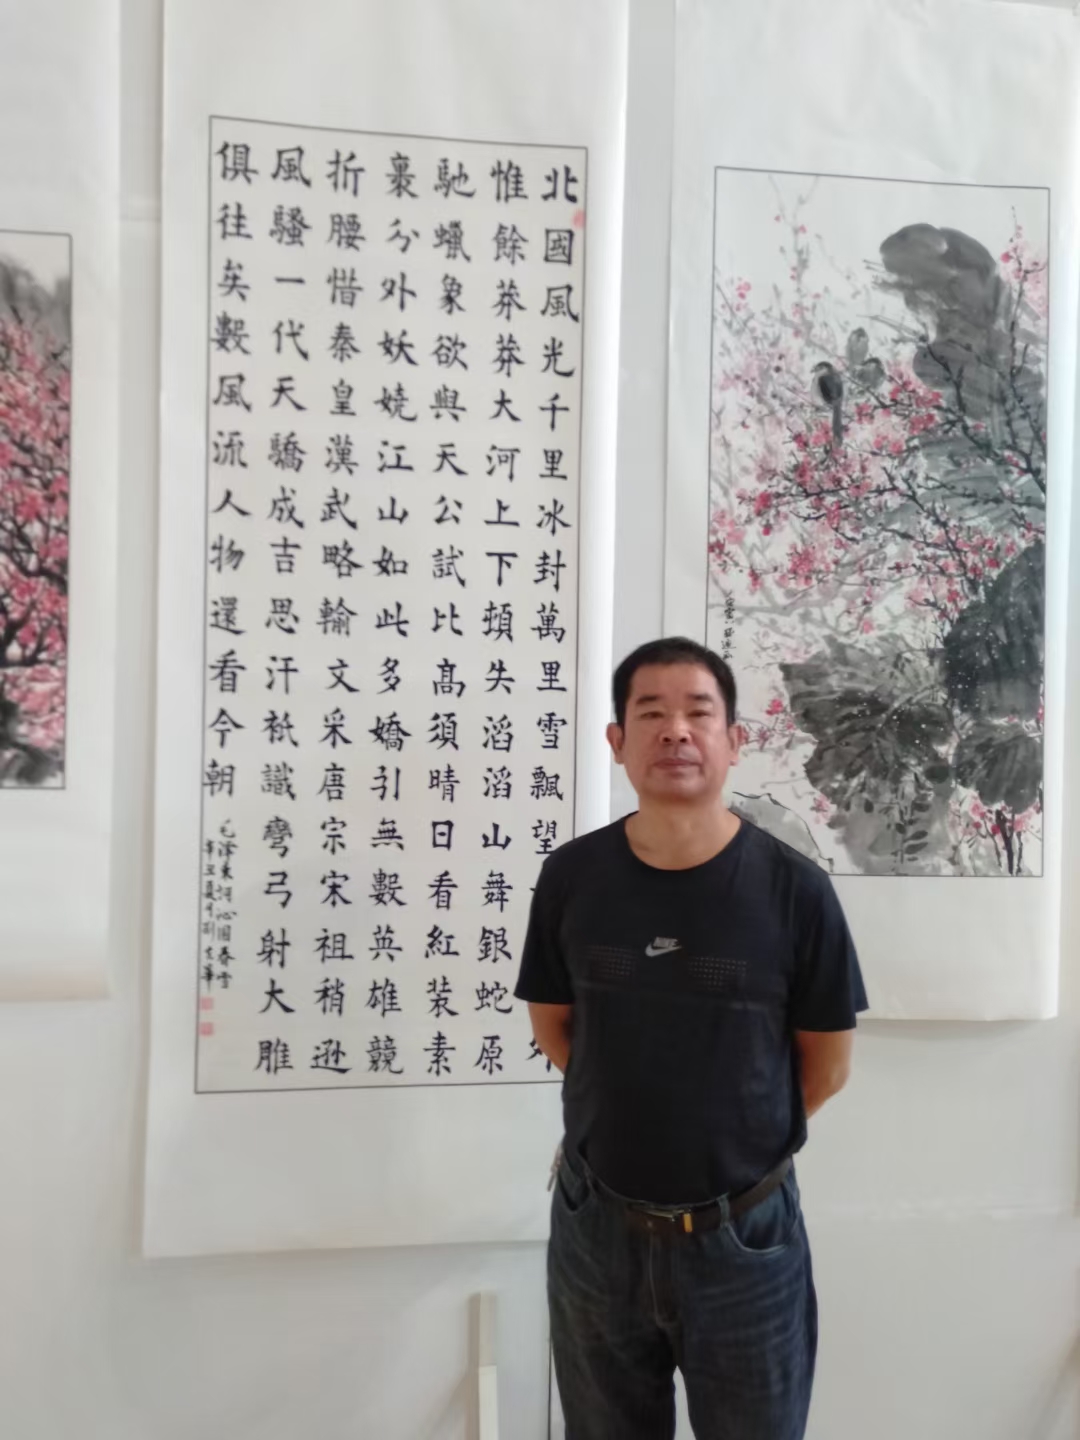 北國風光千里冰封萬里雪飄望
惟餘莽莽大河上下頓失滔滔山舞銀蛇原
馳蠟象欲與天公試比髙須晴日看紅装素
裹分外妖嬈江山如此多嬌引無數英雄競
折腰惜秦皇漢武略輸文采唐宗宋祖稍遜
風騷一代天驕成吉思汗祇識彎弓射大雕
俱往矣數風流人物還看今朝
毛澤東詞沁園春雪
辛丑夏月劉華
NIKE